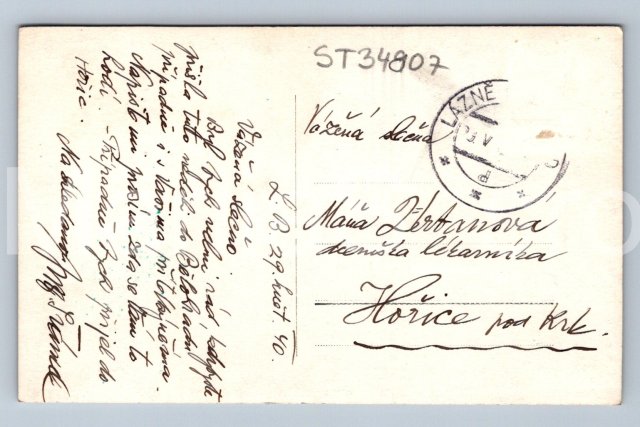 ST34807
L. B. 29. květ. 40.
Vážená slečno!
Byl bych velmi rád, kdybyste
přišla tuto neděli do Bělohradu
případně i s Vašima přítelkyněma.
Napište mi prosím, zda se Vám to
hodí. - Případně bych přijel do
Hořic.
Na shledanou
LÁZNĚ
Vážená slečna
Máňa Zerbanová
lékárníka
Hořice pod Krk.